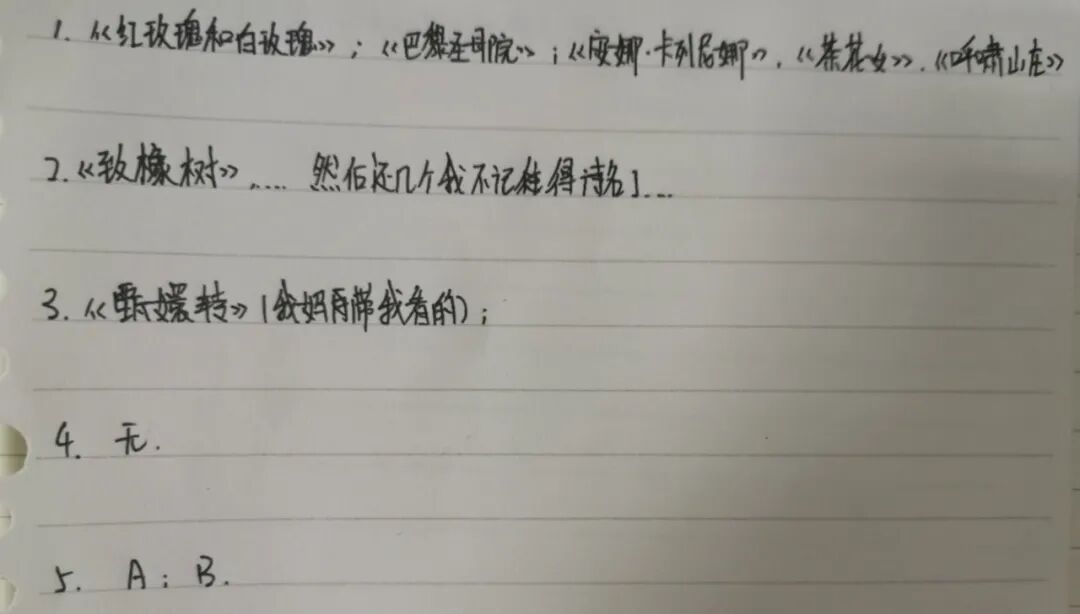 1. 《红玫瑰和白玫瑰》；《巴黎圣母院》；《安娜·卡列尼娜》，《茶花女》、《呼啸山庄》
2.《致橡树》..... 然后还几个我不记住得诗名了...
3.《甄嬛转》(我妈再带我看的)；
4. 无.
5. A；B.